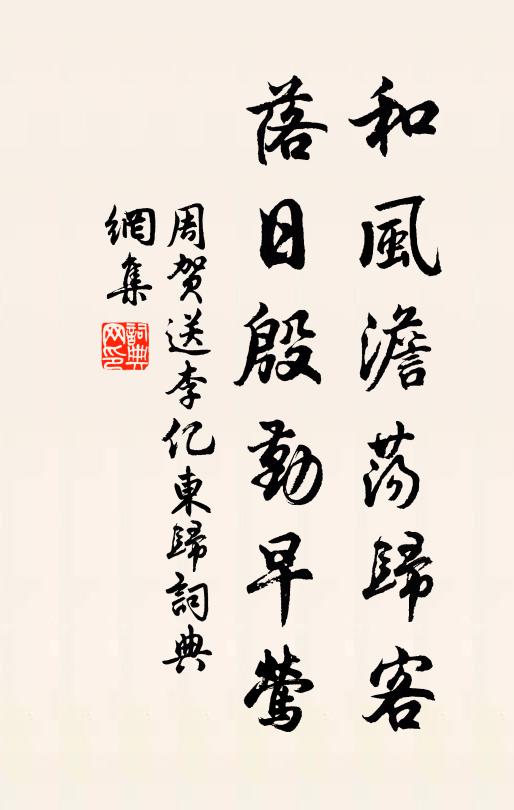 和風澹荡歸客
落日殷勤早鶯
周賀送李亿東歸詞典
網集
詞典网印